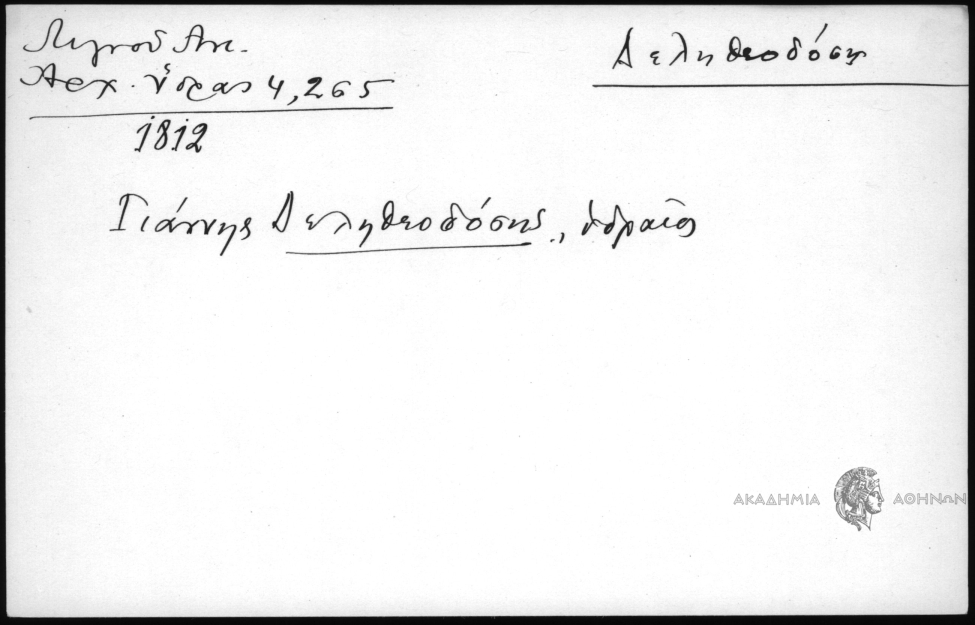 Λιγνοῦ Ἀντ.
Ἀρχ. Ὕδρας 4, 265
Δεληθεοδόσης
1812
Γιάννης Δεληθεοδόσης, ὑδραῖος
ΑΚΑΔΗΜΙΑ ΑΘΗΝΩΝ